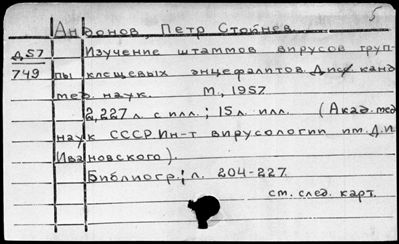 5
Антонов, Петр Стойнев
Д57
749
Изучение штаммов вирусов груп-
пы клещевых энцефалитов. Дис. канд
мед. наук. М., 1957
2, 227 л. с илл.; 15 л. илл. (Акад. мед
наук СССР. Ин-т вирусологии им. Д. И
Ивановского).
Библиогр.: л. 204-227
см. след. карт.